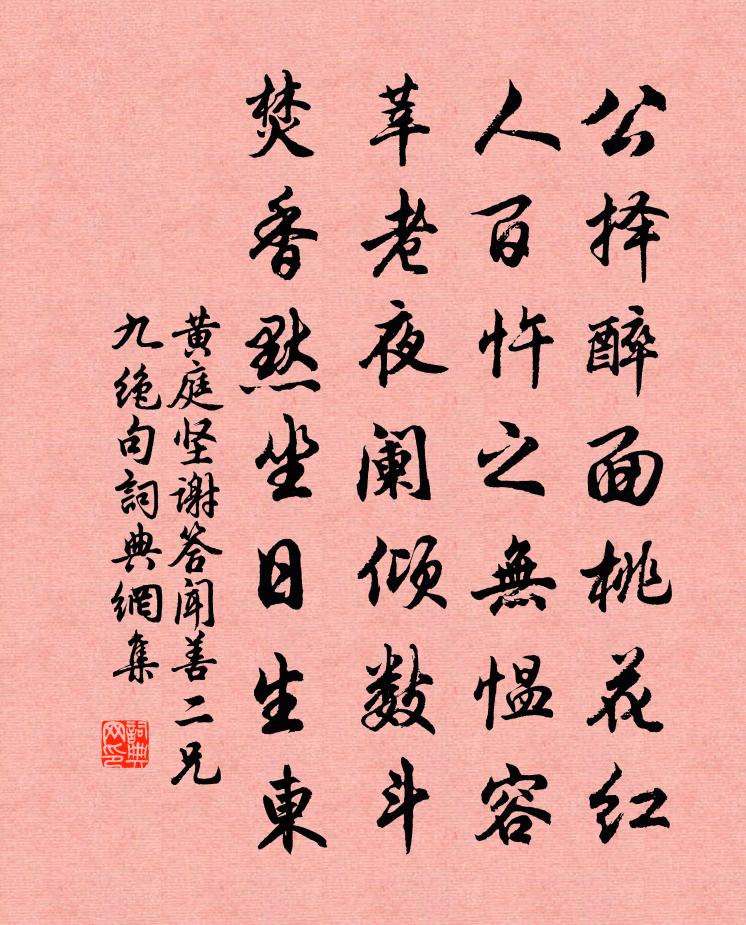 公择醉面桃花红
人百忤之無愠容
莘老夜阑倾数斗
焚香默坐日生東
黄庭坚谢答闻善二兄
九绝句詞典網集
詞典网印